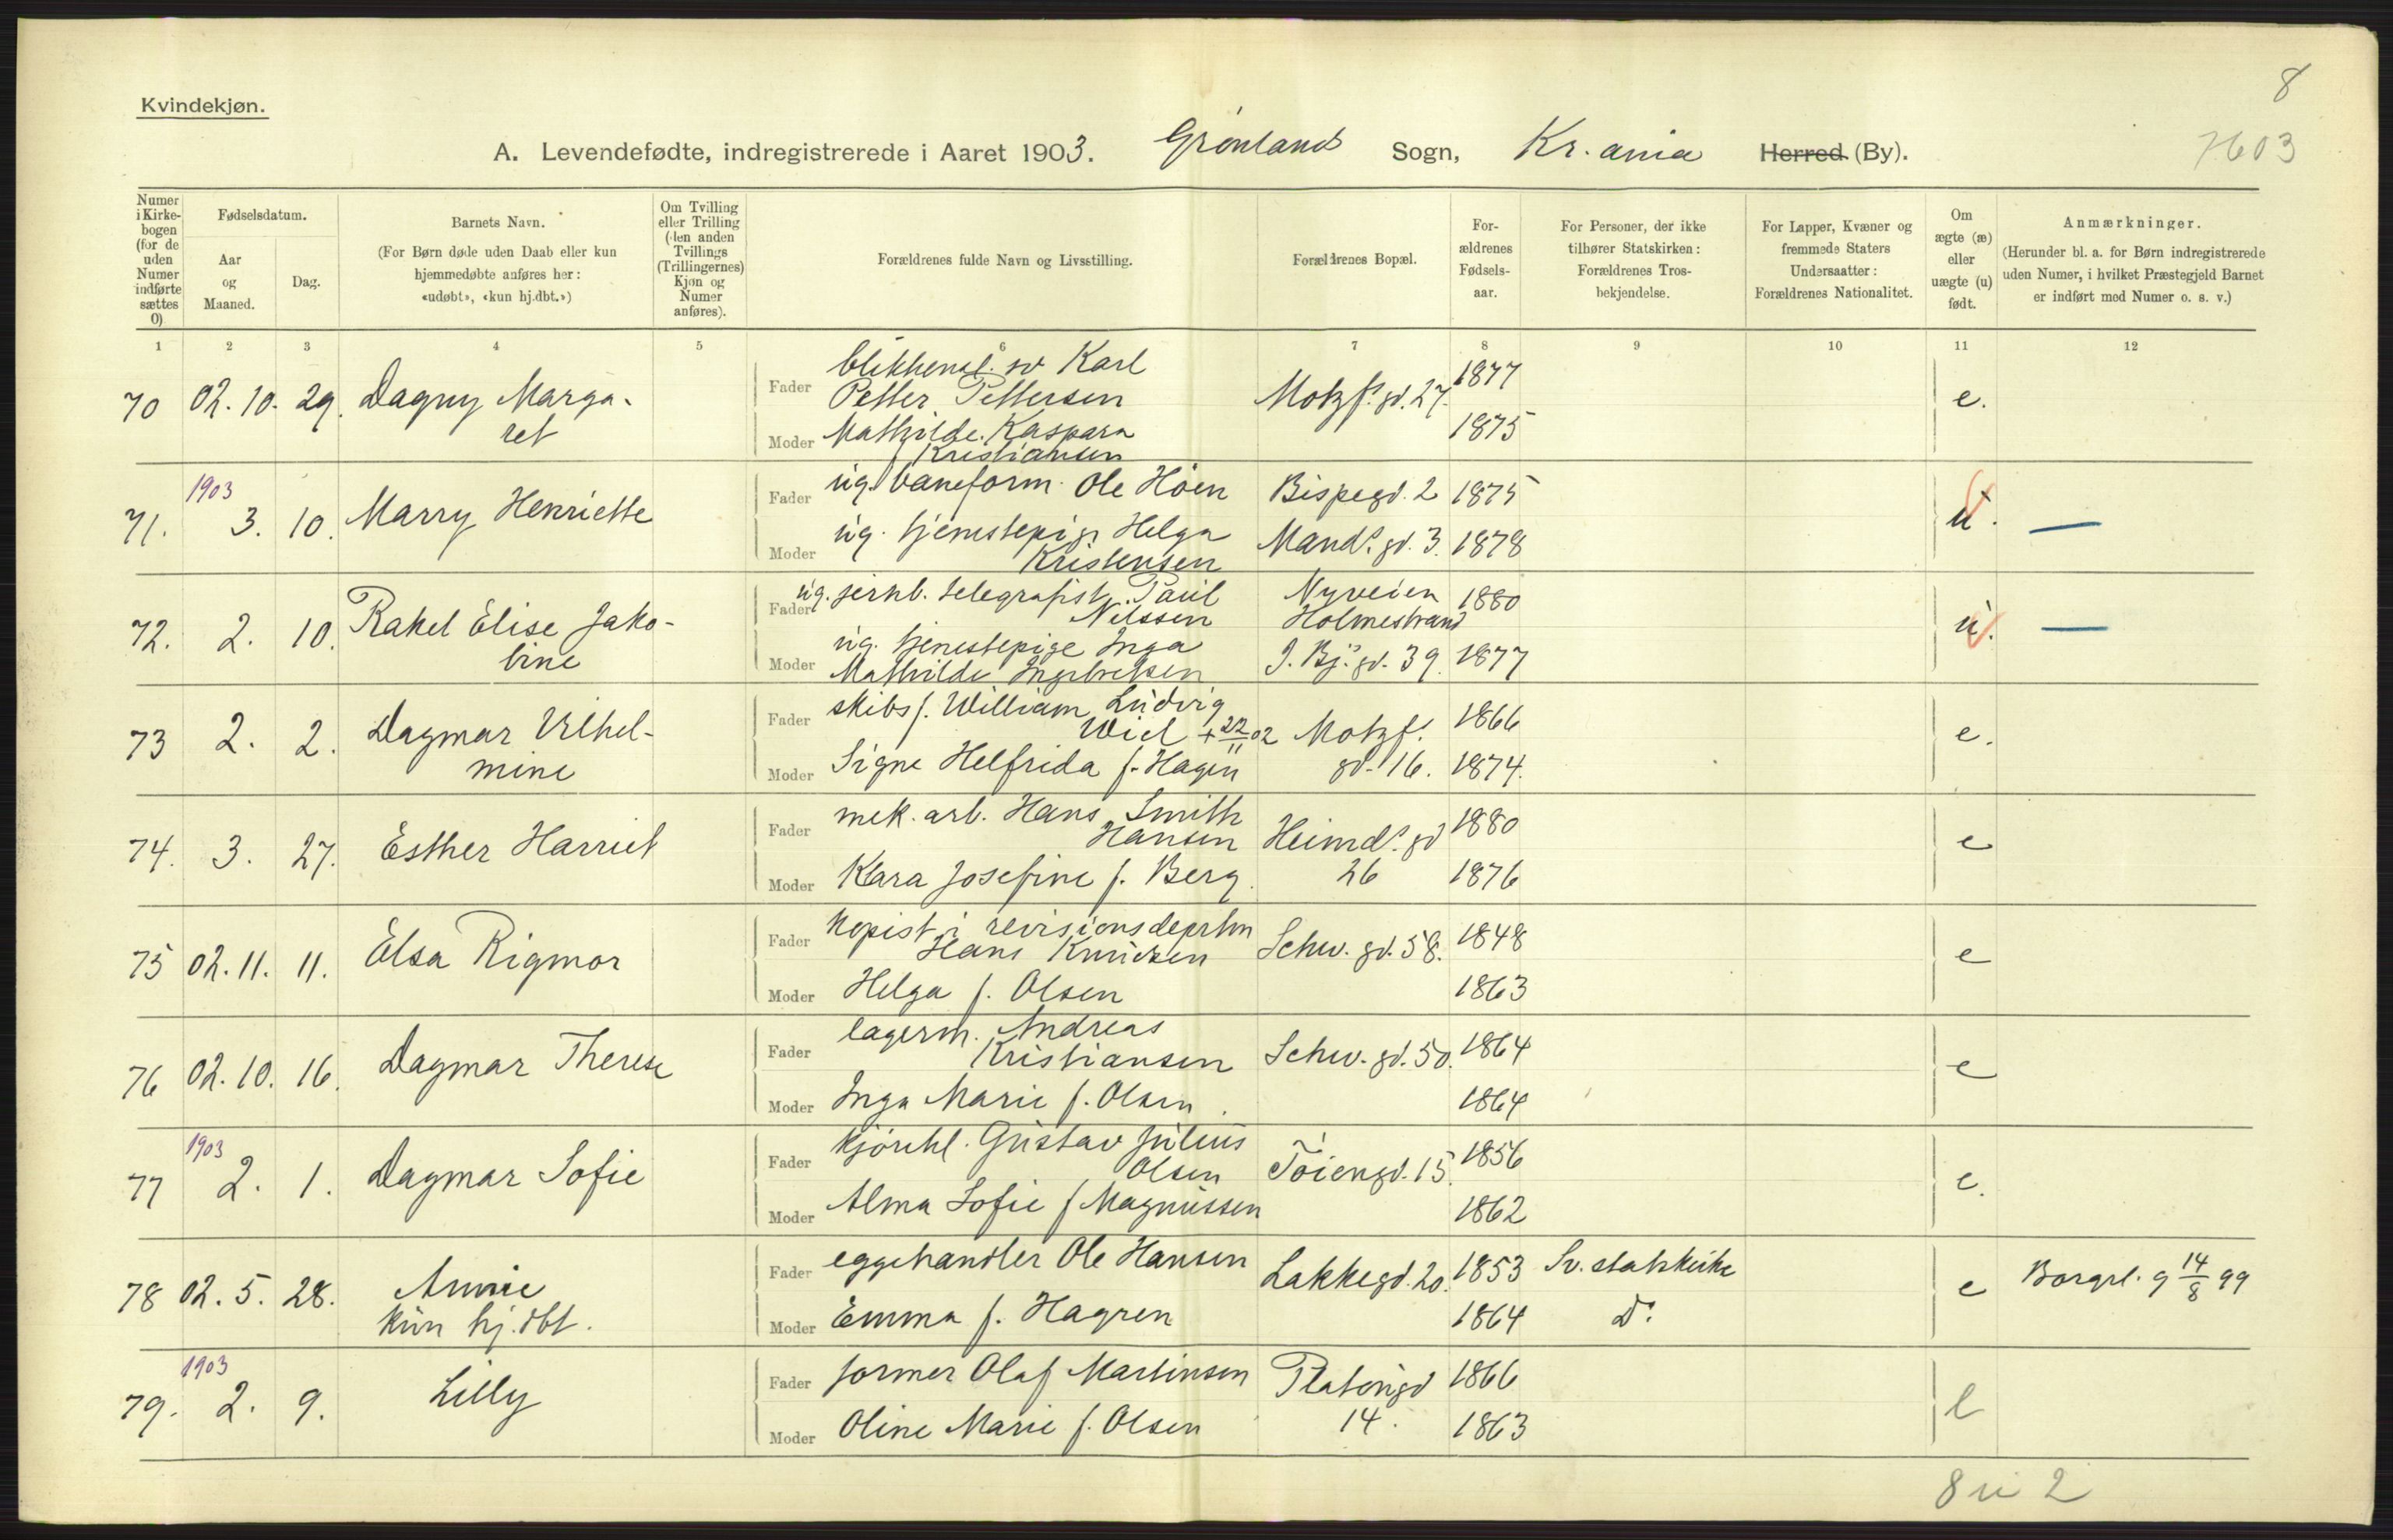 8
Kvindekjøn.
A. Levendefødte, indregistrerede i Aaret 1903. Grønland Sogn, Kr.ania Herred (By).
7603
Numer i Kirkebogen (for de uden Numer indførte sættes 0)
Fødselsdatum.
Aar og Maaned.
Dag.
Barnets Navn.
(For Børn døde uden Daab eller kun hjemmedøbte anføres her: «udøbt», «kun hj.dbt.»)
Om Tvilling eller Trilling (den anden Tvillings (Trillingernes) Kjøn og Numer anføres).
Forældrenes fulde Navn og Livsstilling.
Forældrenes Bopæl.
Forældrenes Fødselsaar.
For Personer, der ikke tilhører Statskirken: Forældrenes Trosbekjendelse.
For Lapper, Kvæner og fremmede Staters Undersaatter: Forældrenes Nationalitet.
Om ægte (æ) eller uægte (u) født.
Anmærkninger.
(Herunder bl. a. for Børn indregistrerede uden Numer, i hvilket Præstegjeld Barnet er indført med Numer o. s. v.)
1 2 3 4 5 6 7 8 9 10 11 12
70 02.10. 29. Dagny Marga-
ret
Fader blikkensl. sv Karl
Petter Pettersen Motzf.s gd. 27. 1877 e.
Moder Mathilde Kaspara
f Kristiansen 1875
71. 1903 3. 10. Marry Henriette
Fader ug. baneform. Ole Höen Bispegd. 2 1875 u. —
Moder ug. tjenestepige Helga
Kristensen Mand.s gd. 3. 1878
72. 2. 10. Rakel Elise Jako-
bine
Fader ug. jernb. telegrafist Paul
Nilssen Nyveien
Holmestrand 1880 u. —
Moder ug. tjenestepige Inga
Mathilde Ingebretsen J. Bj.s gd. 39. 1877
73 2. 2. Dagmar Vilhel-
mine
Fader skibsf. William Ludvig
Wiel + 22/11 02 Motzf.s 1866 e.
Moder Signe Helfrida f. Hagen gd. 16. 1874.
74. 3. 27. Esther Harriet
Fader mek. arb. Hans Smith
Hansen Heimd.s gd 1880 e
Moder Klara Josefine f. Berg. 26 1876
75 02.11. 11. Elsa Rigmor
Fader kopist i revisionsdeprtm
Hans Knudsen Schw. gd. 58. 1848 e
Moder Helga f. Olsen 1863
76 02.10. 16. Dagmar Therese
Fader lagerm. Andreas
Kristiansen Schw. gd. 50. 1864 e
Moder Inga Marie f. Olsen 1864
77 1903 2. 1. Dagmar Sofie
Fader Gustav Julius
Olsen Töiengd. 15. 1856 e.
Moder Alma Sofie f Magnussen 1862
78 02.5. 28. Annie
kun hj.dbt.
Fader eggehandler Ole Hansen Lakkegd. 20. 1853 Sv. statskirke e Borgrl. g 14/8 99
Moder Emma f. Hagren 1864 Do
79. 1903 2. 9. Lilly
Fader former Olaf Martinsen Platöugd 1866 e
Moder Oline Marie f. Olsen 14. 1863
8 u 2